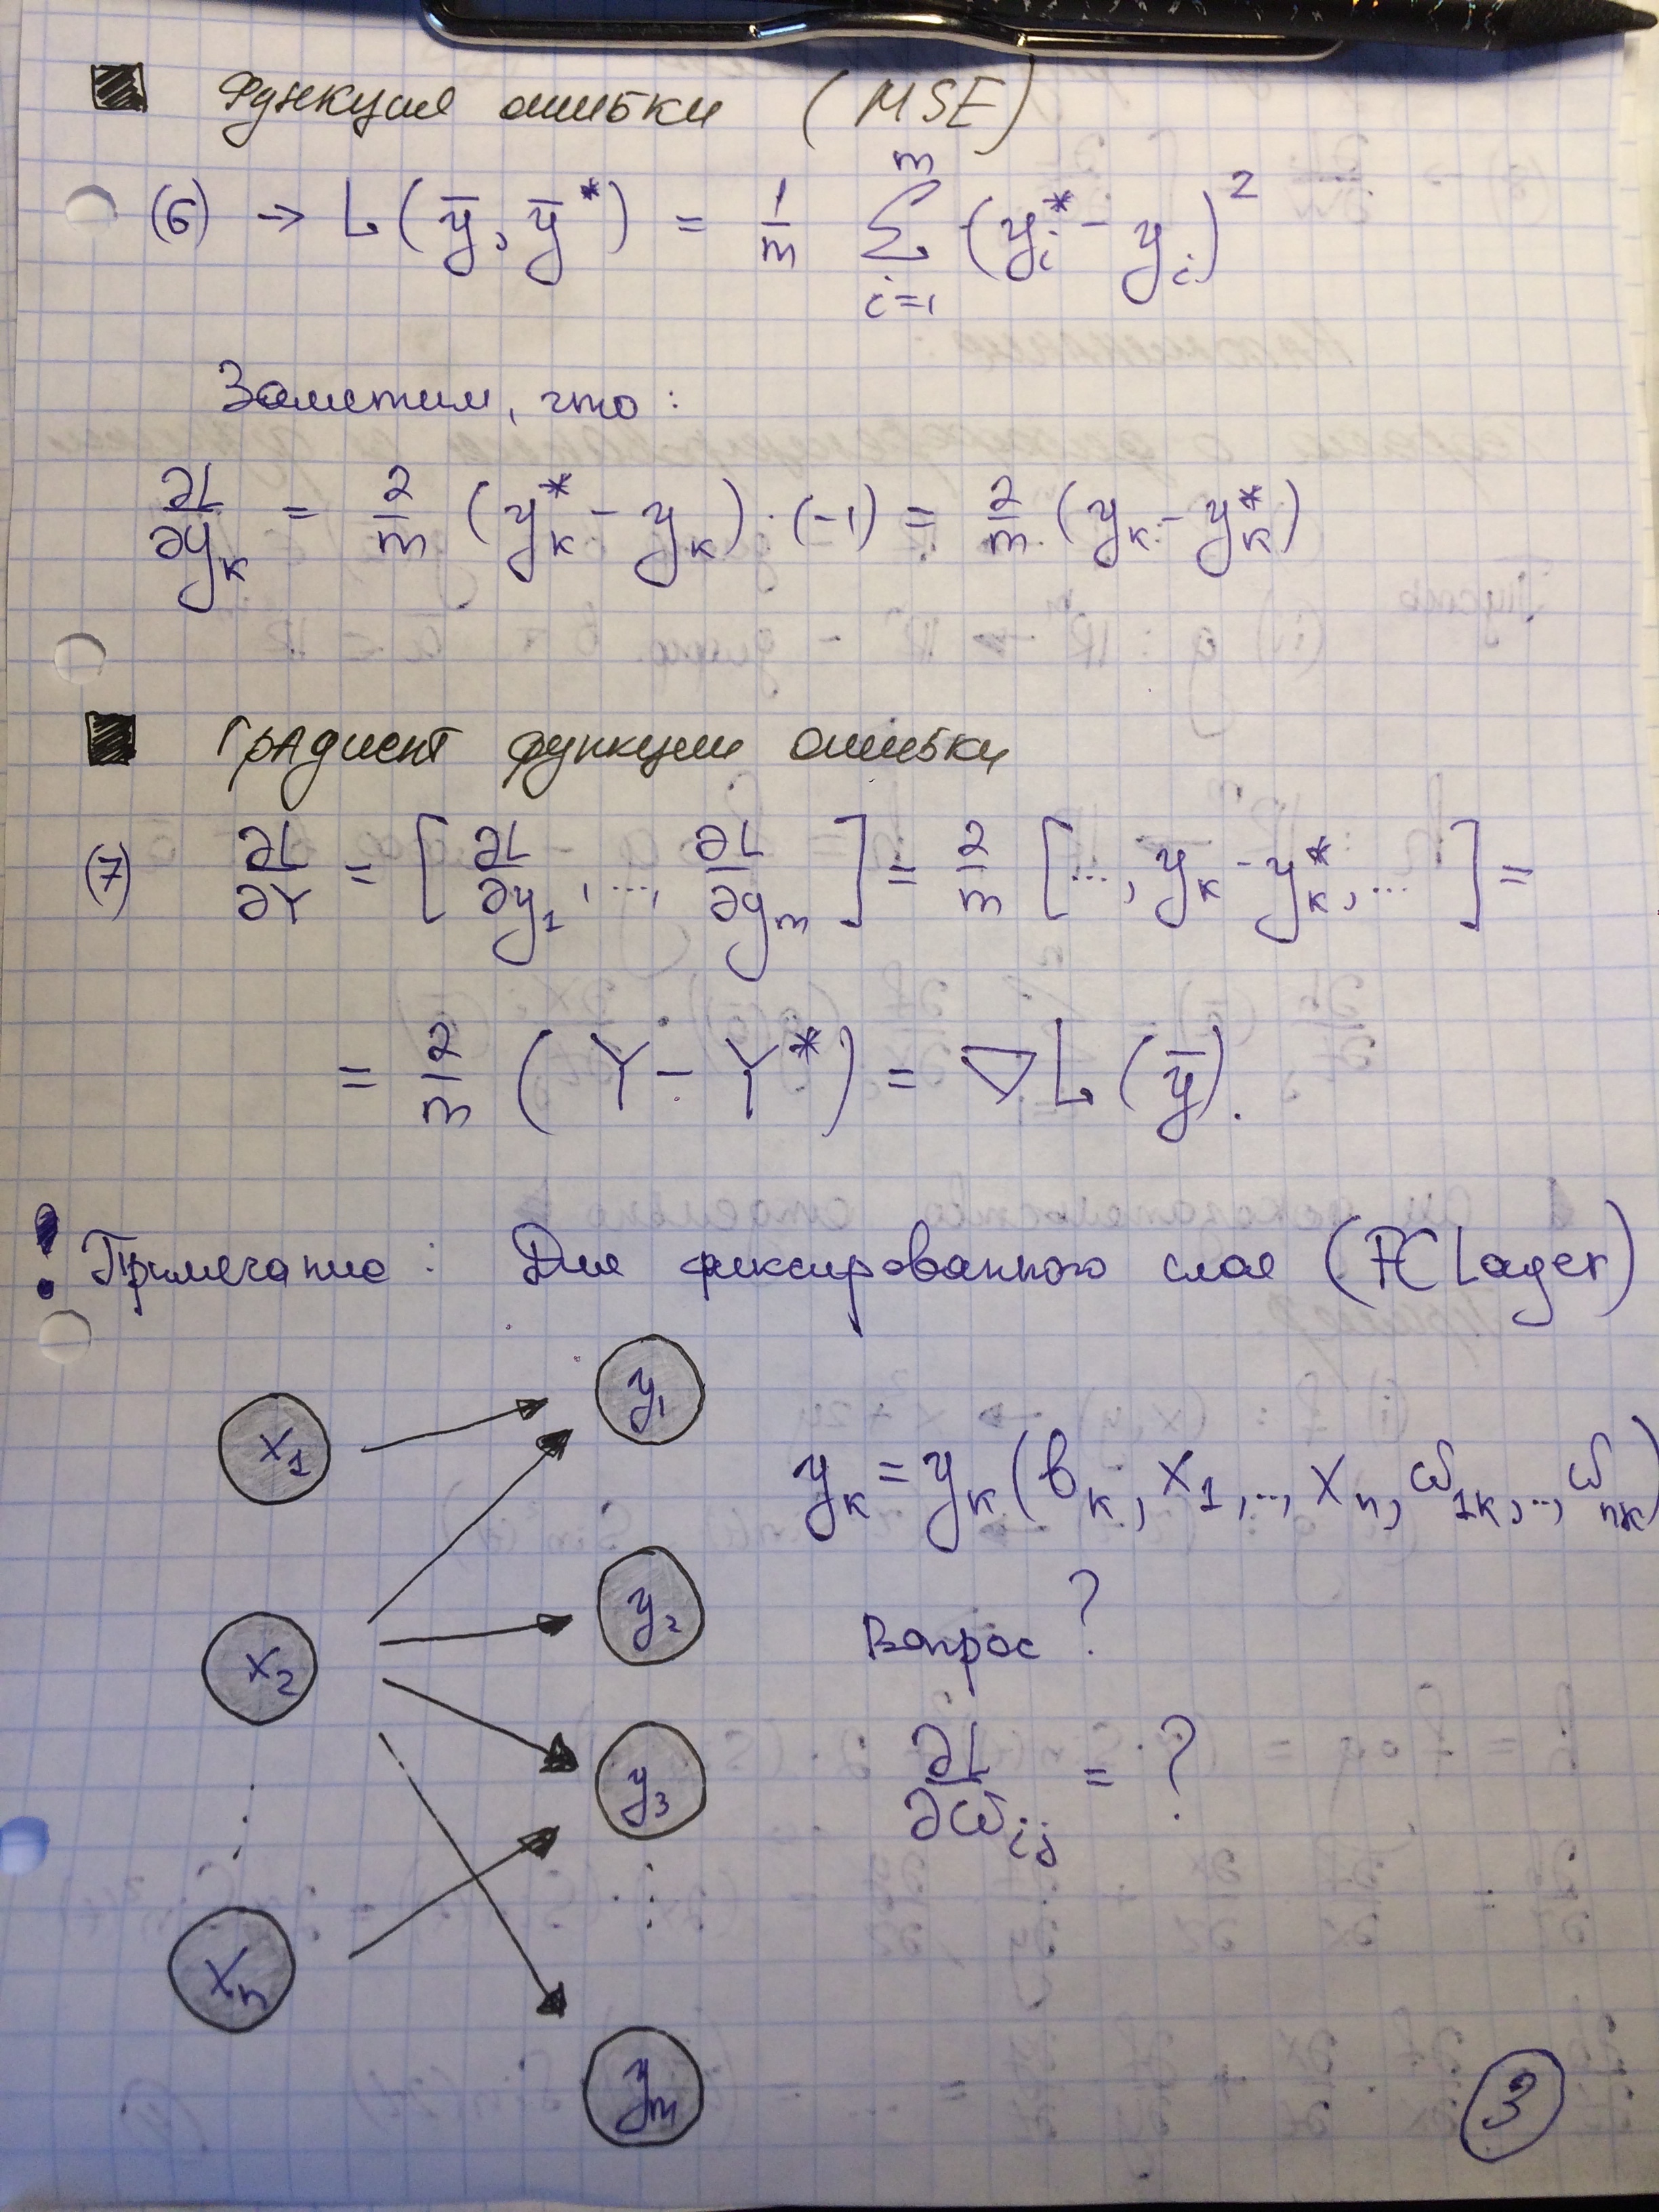 Функция ошибки (MSE)
(6) → L(ȳ, ȳ*) = 1/m Σ_{i=1}^{m} (y_i* - y_i)²
Заметим, что:
∂L/∂y_k = 2/m (y_k* - y_k)·(-1) = 2/m (y_k - y_k*)
Градиент функции ошибки
(7) ∂L/∂Y = [∂L/∂y_1, ..., ∂L/∂y_m] = 2/m [..., y_k - y_k*, ...] =
= 2/m (Y - Y*) = ∇L(ȳ).
! Примечание: Для фиксированного слоя (FC Layer)
x_1
y_1
y_k = y_k(b_k, x_1, .., x_n, ω_1k, .., ω_nk)
x_2
y_2
Вопрос?
y_3
∂L/∂ω_ij = ?
x_n
y_m
3